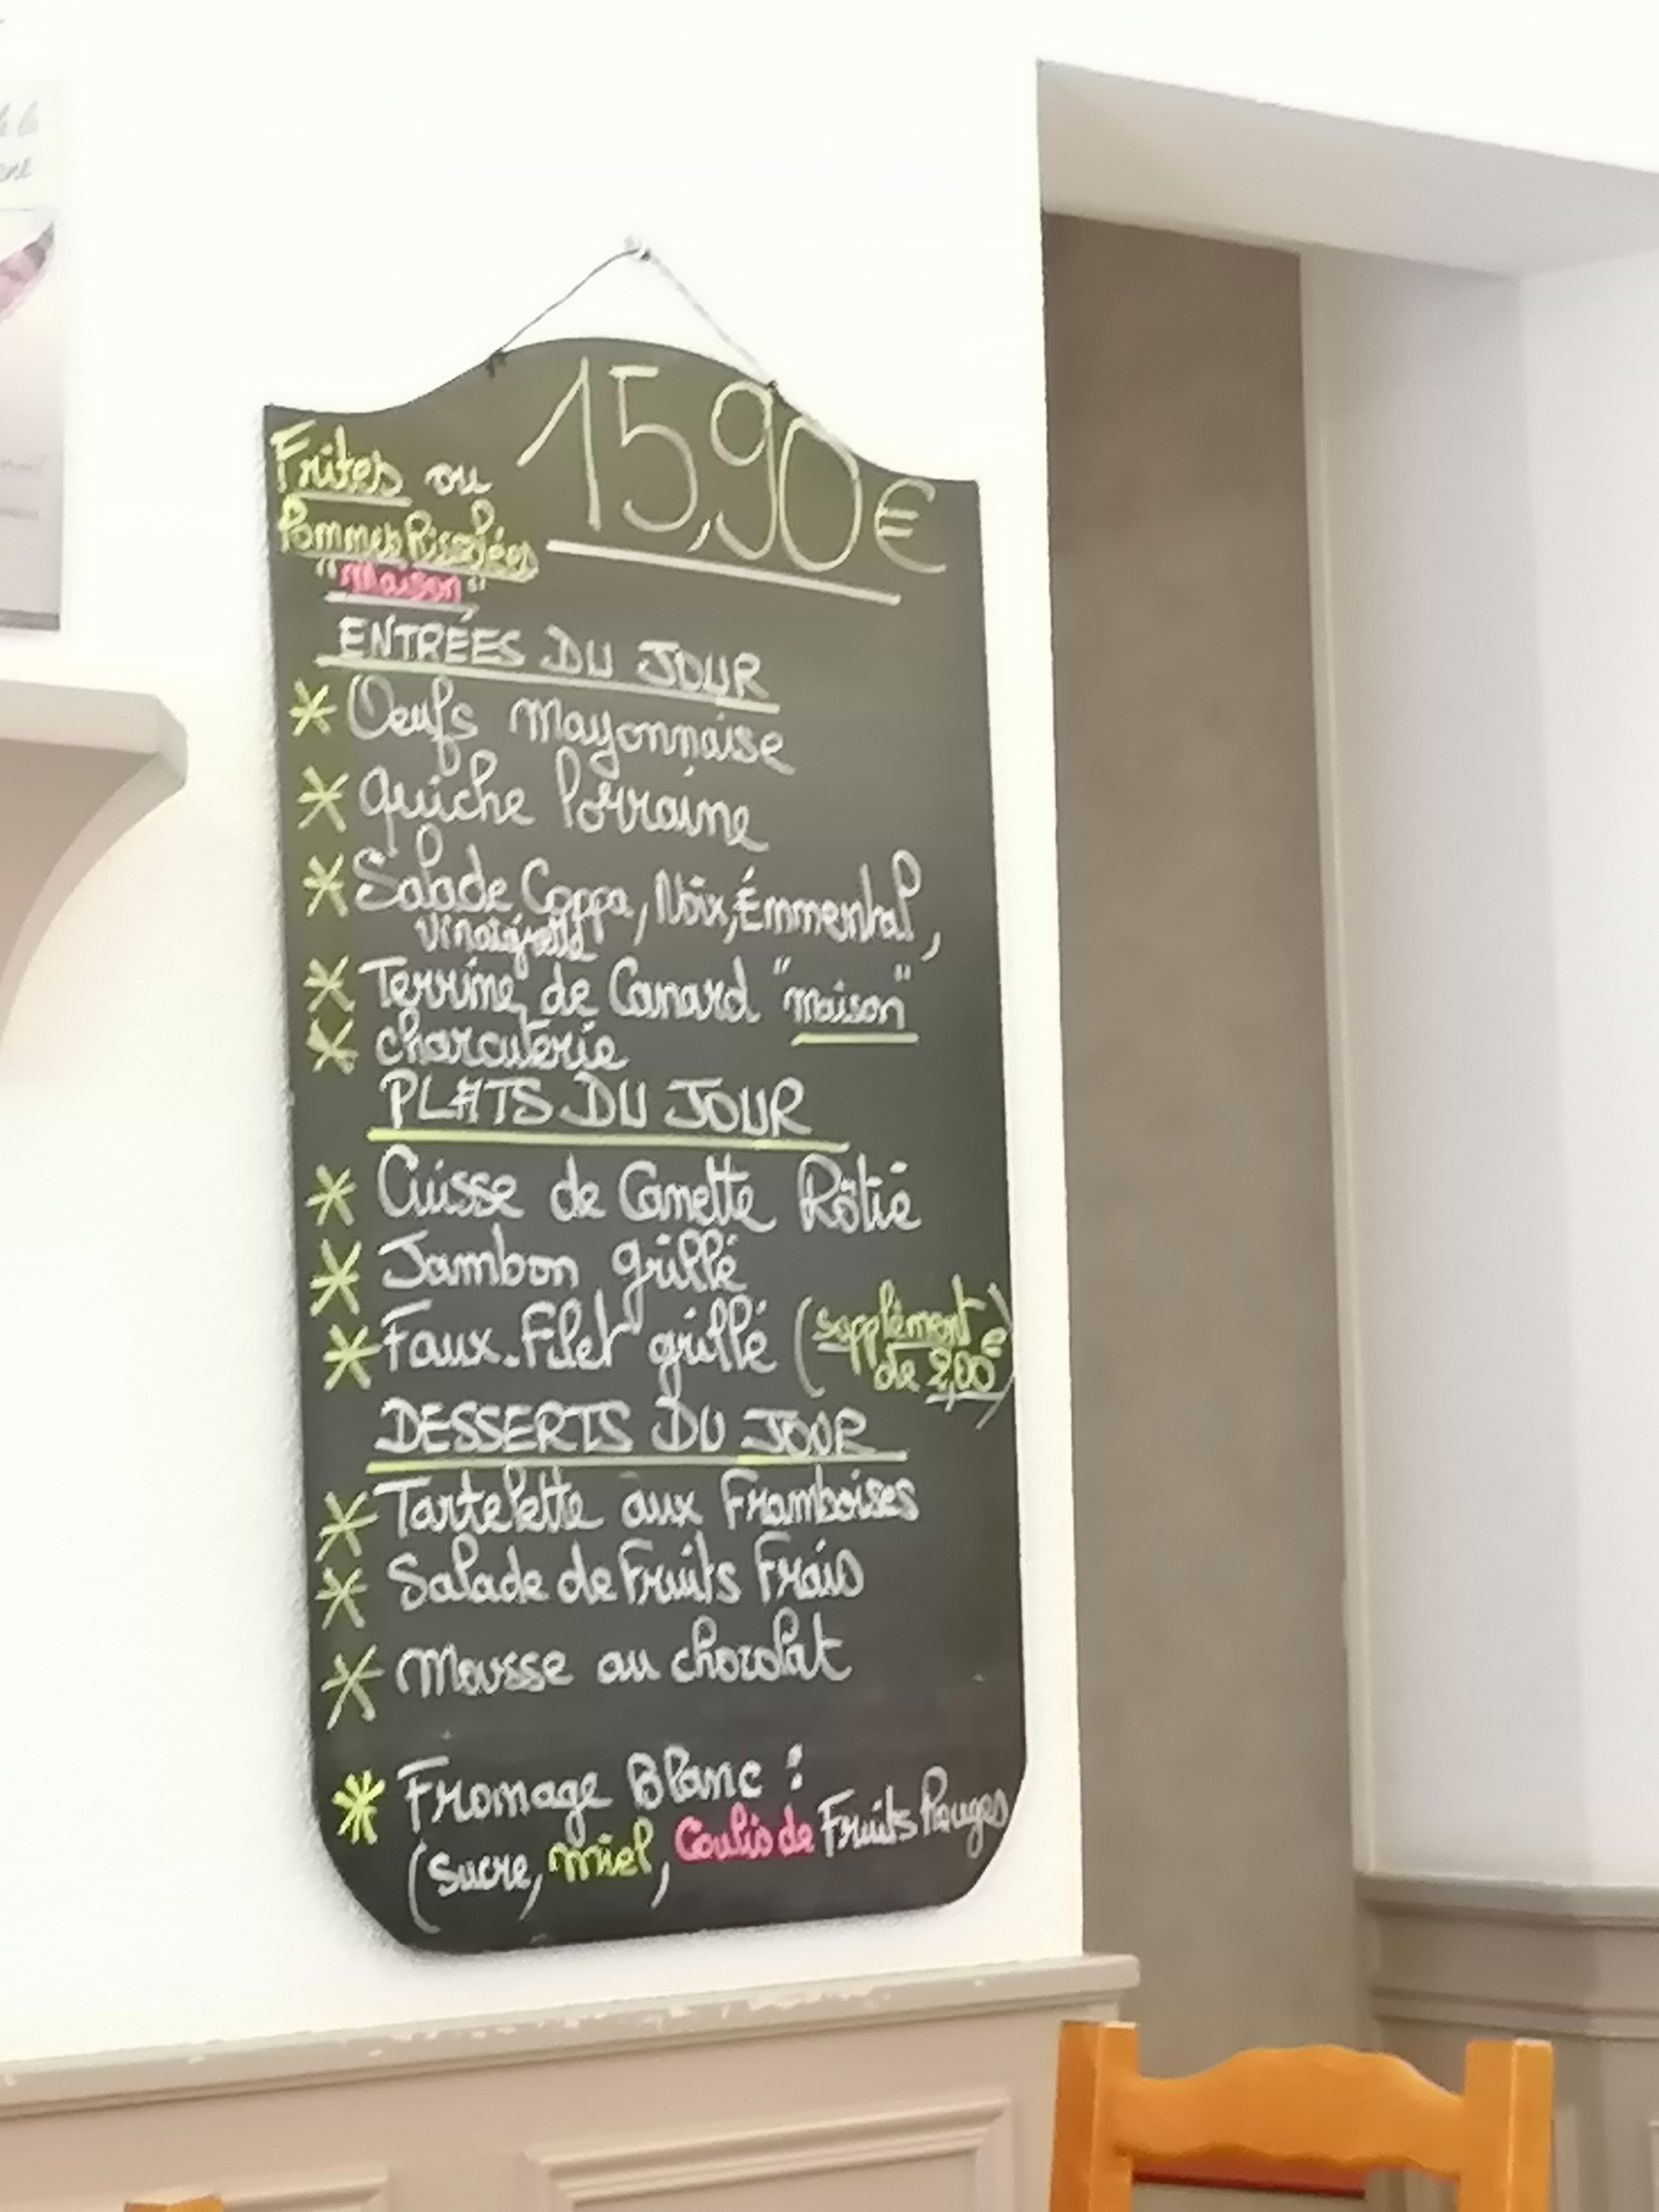 15,90€
Frites ou
Pommes Rissolées
"Maison"
ENTRÉES DU JOUR
* Oeufs Mayonnaise
* Quiche Lorraine
* Salade Coppa, Noix, Émmental,
Vinaigrette
* Terrine de Canard "maison"
* charcuterie
PLATS DU JOUR
* Cuisse de Canette Rôtie
* Jambon grillé
* Faux-Filet grillé (supplément
de 2,00€)
DESSERTS DU JOUR
* Tartelette aux Framboises
* Salade de Fruits Frais
* Mousse au chocolat
* Fromage Blanc :
(Sucre, miel, Coulis de Fruits Rouges